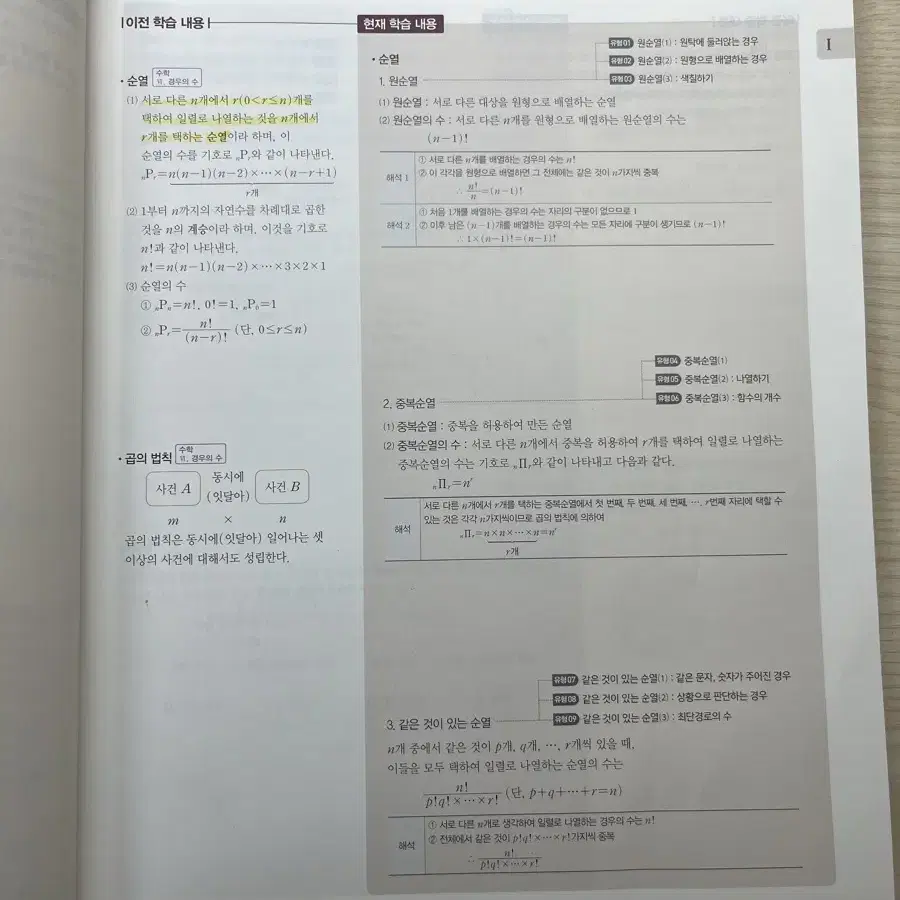 이전 학습 내용
· 순열 수학 Ⅵ. 경우의 수
(1) 서로 다른 n개에서 r(0<r≤n)개를
택하여 일렬로 나열하는 것을 n개에서
r개를 택하는 순열이라 하며, 이
순열의 수를 기호로 ₙPᵣ와 같이 나타낸다.
ₙPᵣ=n(n-1)(n-2)×⋯×(n-r+1)
r개
(2) 1부터 n까지의 자연수를 차례대로 곱한
것을 n의 계승이라 하며, 이것을 기호로
n!과 같이 나타낸다.
n!=n(n-1)(n-2)×⋯×3×2×1
(3) 순열의 수
① ₙPₙ=n!, 0!=1, ₙP₀=1
② ₙPᵣ=n!/(n-r)! (단, 0≤r≤n)
· 곱의 법칙 수학 Ⅵ. 경우의 수
사건 A 동시에 (잇달아) 사건 B
m × n
곱의 법칙은 동시에(잇달아) 일어나는 셋
이상의 사건에 대해서도 성립한다.
현재 학습 내용
I
· 순열
유형01 원순열(1) : 원탁에 둘러앉는 경우
유형02 원순열(2) : 원형으로 배열하는 경우
유형03 원순열(3) : 색칠하기
1. 원순열
(1) 원순열 : 서로 다른 대상을 원형으로 배열하는 순열
(2) 원순열의 수 : 서로 다른 n개를 원형으로 배열하는 원순열의 수는
(n-1)!
해석 1
① 서로 다른 n개를 배열하는 경우의 수는 n!
② 이 각각을 원형으로 배열하면 그 전체에는 같은 것이 n가지씩 중복
∴ n!/n=(n-1)!
해석 2
① 처음 1개를 배열하는 경우의 수는 자리의 구분이 없으므로 1
② 이후 남은 (n-1)개를 배열하는 경우의 수는 모든 자리에 구분이 생기므로 (n-1)!
∴ 1×(n-1)!=(n-1)!
유형04 중복순열(1)
유형05 중복순열(2) : 나열하기
유형06 중복순열(3) : 함수의 개수
2. 중복순열
(1) 중복순열 : 중복을 허용하여 만든 순열
(2) 중복순열의 수 : 서로 다른 n개에서 중복을 허용하여 r개를 택하여 일렬로 나열하는
중복순열의 수는 기호로 ₙΠᵣ와 같이 나타내고 다음과 같다.
ₙΠᵣ=nʳ
해석
서로 다른 n개에서 r개를 택하는 중복순열에서 첫 번째, 두 번째, 세 번째, ⋯, r번째 자리에 택할 수
있는 것은 각각 n가지씩이므로 곱의 법칙에 의하여
ₙΠᵣ=n×n×⋯×n=nʳ
r개
유형07 같은 것이 있는 순열(1) : 같은 문자, 숫자가 주어진 경우
유형08 같은 것이 있는 순열(2) : 상황으로 판단하는 경우
유형09 같은 것이 있는 순열(3) : 최단경로의 수
3. 같은 것이 있는 순열
n개 중에서 같은 것이 p개, q개, ⋯, r개씩 있을 때,
이들을 모두 택하여 일렬로 나열하는 순열의 수는
n!/(p!q!×⋯×r!) (단, p+q+⋯+r=n)
해석
① 서로 다른 n개로 생각하여 일렬로 나열하는 경우의 수는 n!
② 전체에서 같은 것이 p!q!×⋯×r!가지씩 중복
∴ n!/(p!q!×⋯×r!)